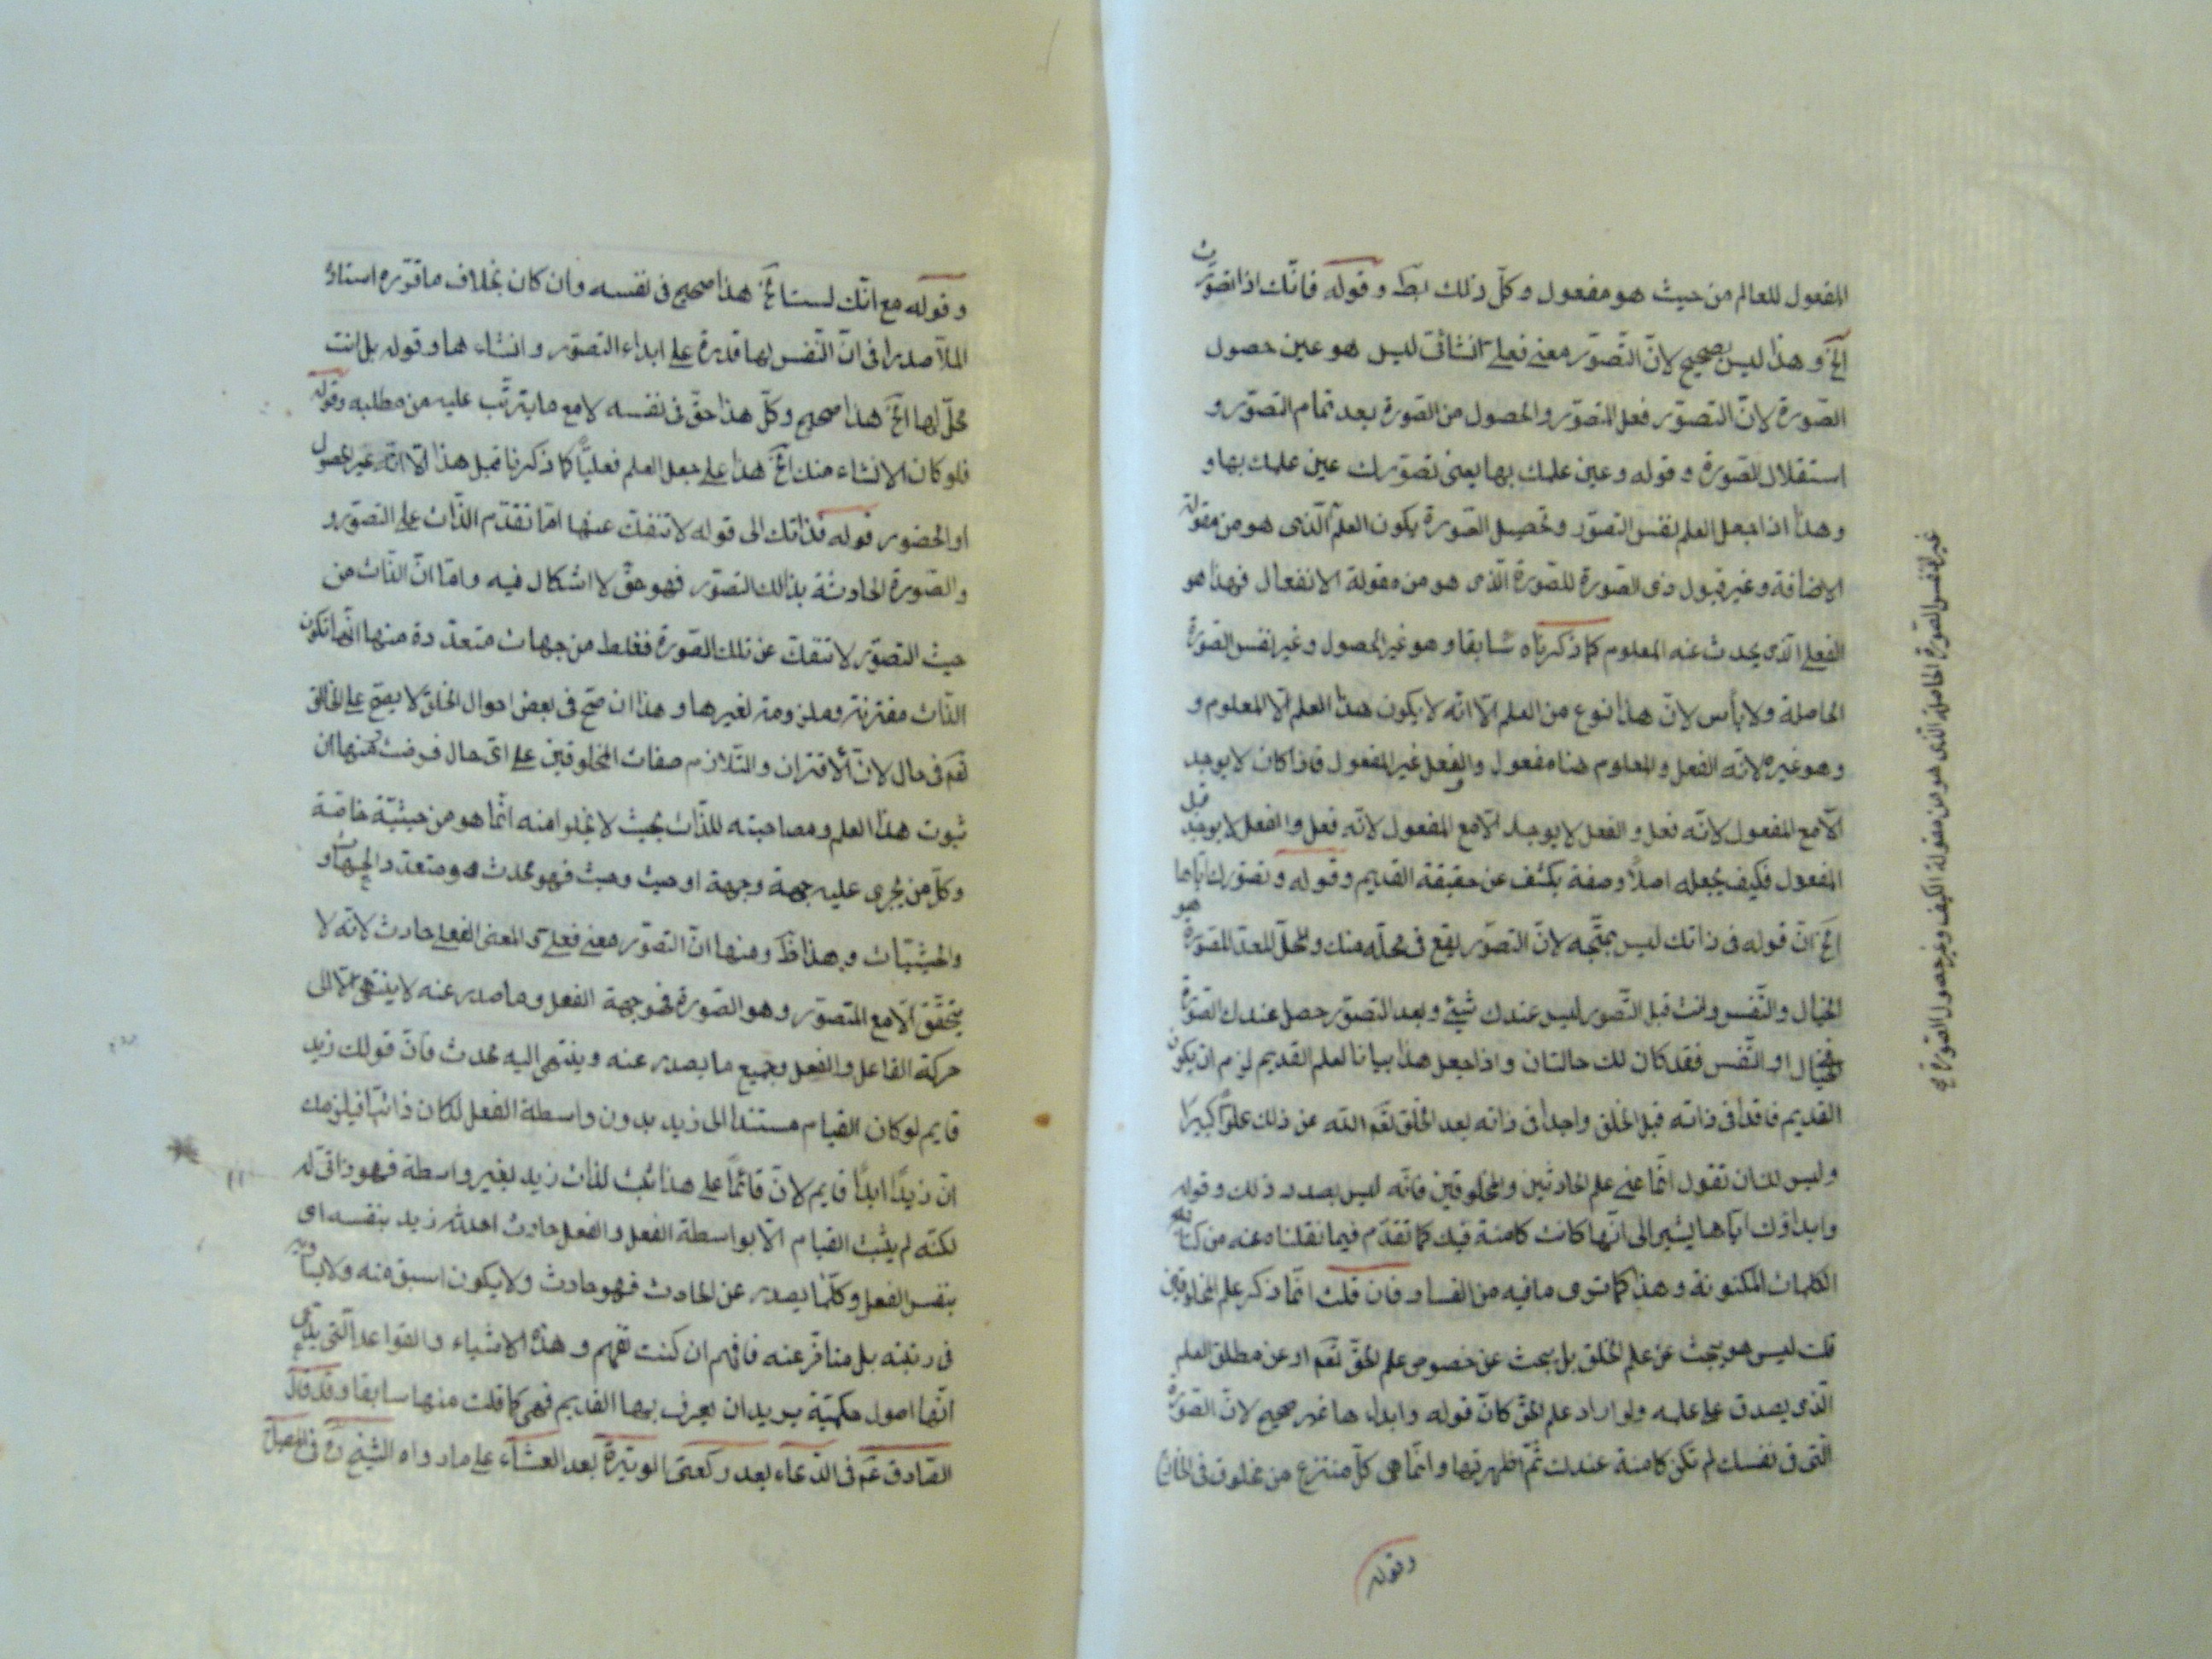 المفعول للعالم من حيث هو مفعول وكلّ ذلك بط وقوله فانّك اذا تصوّرت
الخ وهذا ليس بصحيح لانّ التّصوّر معنى فعلى انشائى ليس هو عين حصول
الصّورة لانّ التصوّر فعل المتصوّر والحصول من الصّورة بعد تمام التصوّر و
استقلال الصّورة وقوله وعين علمك بها يعنى تصوّرك عين علمك بها و
وهذا اذا جعل العلم نفس التصوّر وتحصيل الصّورة يكون العلم الّذى هو من مقولة
الاضافة وغير قبول ذى الصّورة للصّورة الّذى هو من مقولة الانفعال فهذا هو
الفعلى الّذى يحدث عنه المعلوم كما ذكرناه سابقا وهو غير الحصول وغير نفس الصّورة
الحاصلة ولا بأس لانّ هذا نوع من العلم الّا انّه لا يكون هذا العلم الّا المعلوم و
وهو غيره لانّه الفعل والمعلوم هنا مفعول والفعل غير المفعول فاذا كان لا يوجد
الّا مع المفعول لانّه فعل والفعل لا يوجد الّا مع المفعول لانّه فعل والفعل لا يوجد قبل
المفعول فكيف يجعله اصلاً وصفة يكشف عن حقيقة القديم وقوله وتصوّرك ايّاها
الخ انّ قوله فى ذاتك ليس بمتّجه لانّ التصوّر يقع فى محلّه منك والمحلّ المعدّ للصّورة هو
الخيال والنّفس وانت قبل التّصوّر ليس عندك شيئ وبعد التصوّر حصل عندك الصّورة
فى الخيال او النّفس فقد كان لك حالتان واذا جعل هذا بيانا لعلم القديم لزم ان يكون
القديم فاقدا فى ذاته قبل الخلق واجدا فى ذاته بعد الخلق تعم الله عن ذلك علوّا كبيرا
وليس لك ان تقول انّما عنى علم الحادثين والمخلوقين فانّه ليس بصدد ذلك وقوله
وابداؤك ايّاها يشير الى انّها كانت كامنة فيك كما تقدّم فيما نقلناه عنه من كتابه
الكلمات المكنونة وهذا كما ترى ما فيه من الفساد فان قلت انّما ذكر علم المخلوقين
قلت ليس هو يبحث عن علم الخلق بل يبحث عن خصوص علم الحقّ تعم او عن مطلق العلم
الّذى يصدق على علمه ولو اراد علم الحقّ كان قوله وابداءها غير صحيح لانّ الصّورة
الّتى فى نفسك لم تكن كامنة عندك ثمّ اظهرتها وانّما هى كلّ منتزع من مخلوق فى الخارج
وقوله
غير نفس الصّورة الحاصلة الّذى هو من مقولة الكيف وغير حصول الصّورة
وقوله مع انّك لست الخ هذا صحيح فى نفسه وان كان بخلاف ما قرّره استاذه
الملّا صدرا فى انّ النّفس لها قدرة على ابداء التصوّر وانشاءها وقوله بل انت
محلّ لها الخ هذا صحيح وكلّ هذا حقّ فى نفسه لا مع ما يترتّب عليه من مطلبه وقوله
فلو كان الانشاء منك الخ هذا على جعل العلم فعليّا كما ذكرنا قبل هذا الّا انّه غير الحصول
او الحضور قوله فذاتك الى قوله لا تنفك عنها امّا تقدّم الذّات على التصوّر و
والصّورة الحادثة بذلك التصوّر فهو حقّ لا اشكال فيه وامّا انّ الذّات من
حيث التصوّر لا تنفكّ عن تلك الصّورة فغلط من جهات متعدّدة منها انّها تكون
الذّات مقترنة وملزومة لغيرها وهذا ان صحّ فى بعض احوال الخلق لا يصحّ على الخالق
تعم فى حال لانّ الاقتران والتّلازم صفات المخلوقين على اىّ حال فرضت ومنها ان
ثبوت هذا العلم ومصاحبته للذّات بحيث لا يخلوا منه انّما هو من حيثيّة خاصّة
وكلّ من يجرى عليه جهة وجهة او حيث وحيث فهو محدث هو متعدّد الجهات و
والحيثيّات وهذا ظ ومنها انّ التصوّر معنى فعلىّ والمعنى الفعلى حادث لانّه لا
يتحقّق الّا مع المتصوّر وهو الصّورة فهو جهة الفعل وما صدر عنه لا ينتهى الّا الى
حركة الفاعل والفعل وجميع ما يصدر عنه وينتهى اليه محدث فانّ قولك زيد
قايم لو كان القيام مستندا الى زيد بدون واسطة الفعل لكان ذاتيّا فيلزمك
انّ زيدًا ابدًا قايم لانّ قائمًا على هذا ثبت لذات زيد بغير واسطة فهو ذاتىّ له
لكنّه لم يثبت القيام الّا بواسطة الفعل والفعل حادث احدثه زيد بنفسه اى
بنفس الفعل وكلّما يصدر عن الحادث فهو حادث ولا يكون اسبق منه ولا يساويه
فى رتبته بل متأخّر عنه فافهم ان كنت تفهم وهذه الاشياء والقواعد الّتى يدّعى
انّها اصول حكميّة يريد ان يعرف بها القديم فهى كما قلت منها سابقا وقد قال
الصّادق عم فى الدّعاء بعد ركعتى الوتيرة بعد العشاء على ما رواه الشّيخ ره فى المصباح